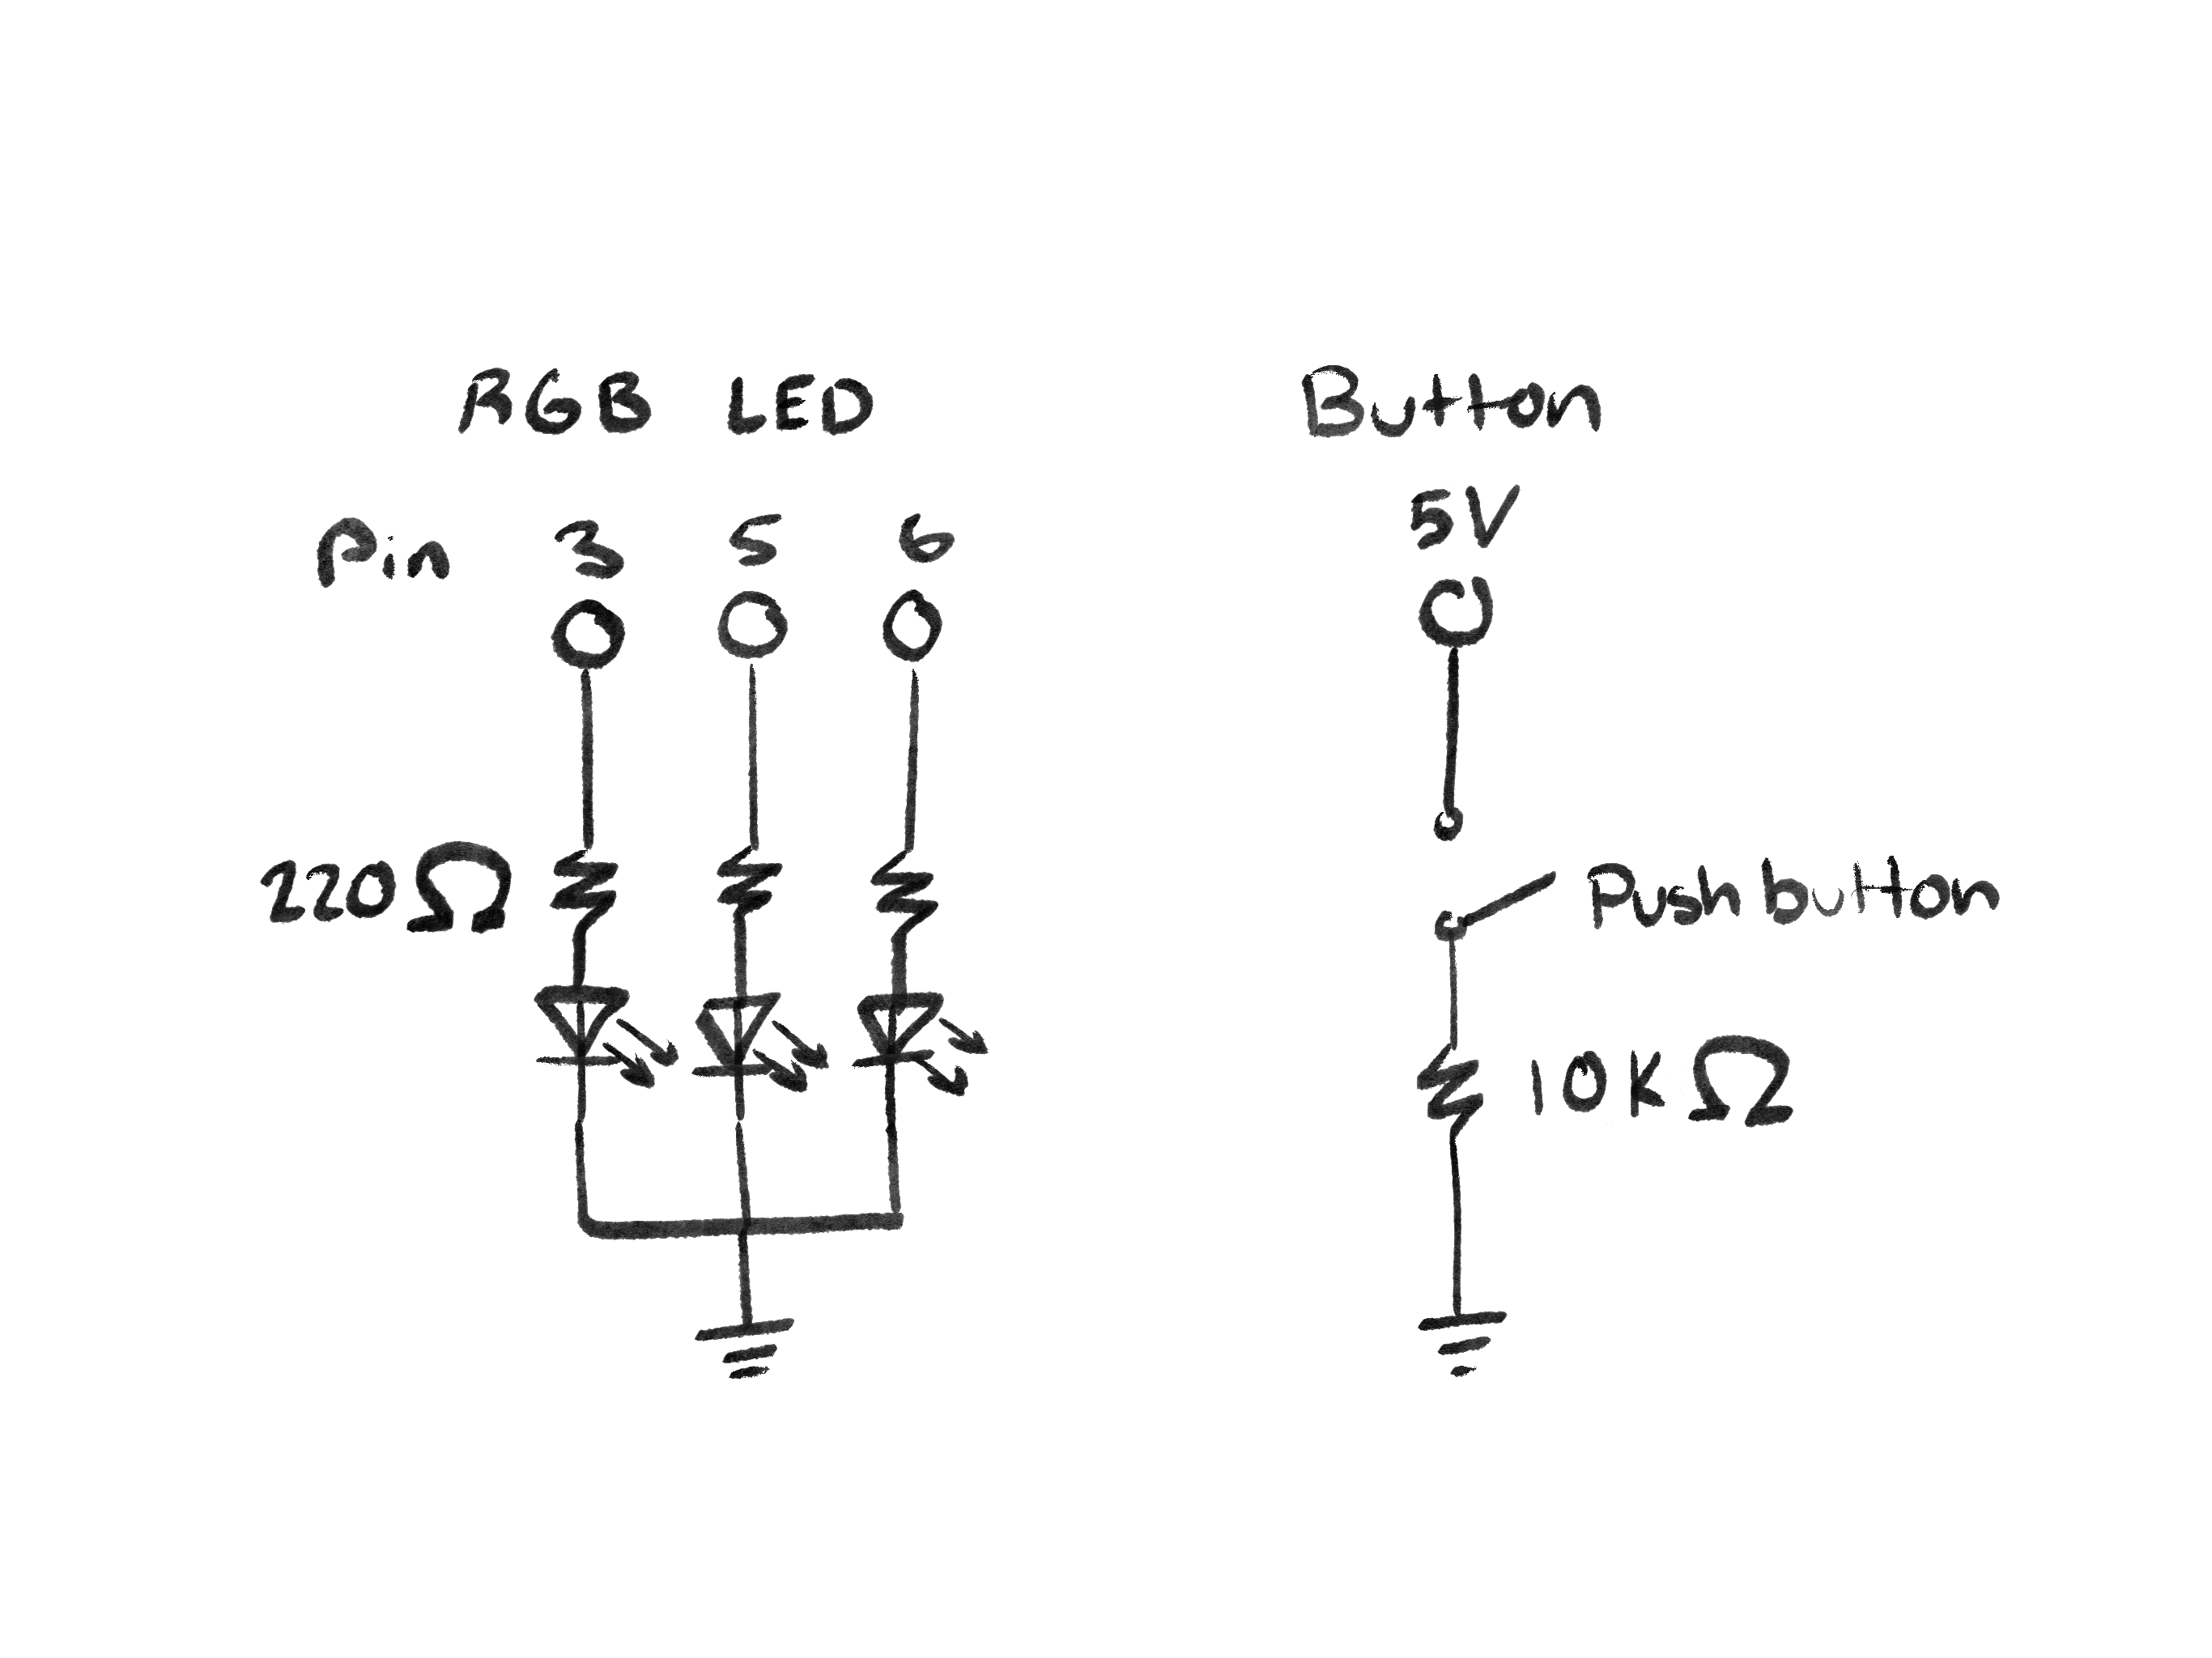 RGB LED
Pin 3 5 6
220Ω
Button
5V
Pushbutton
10KΩ